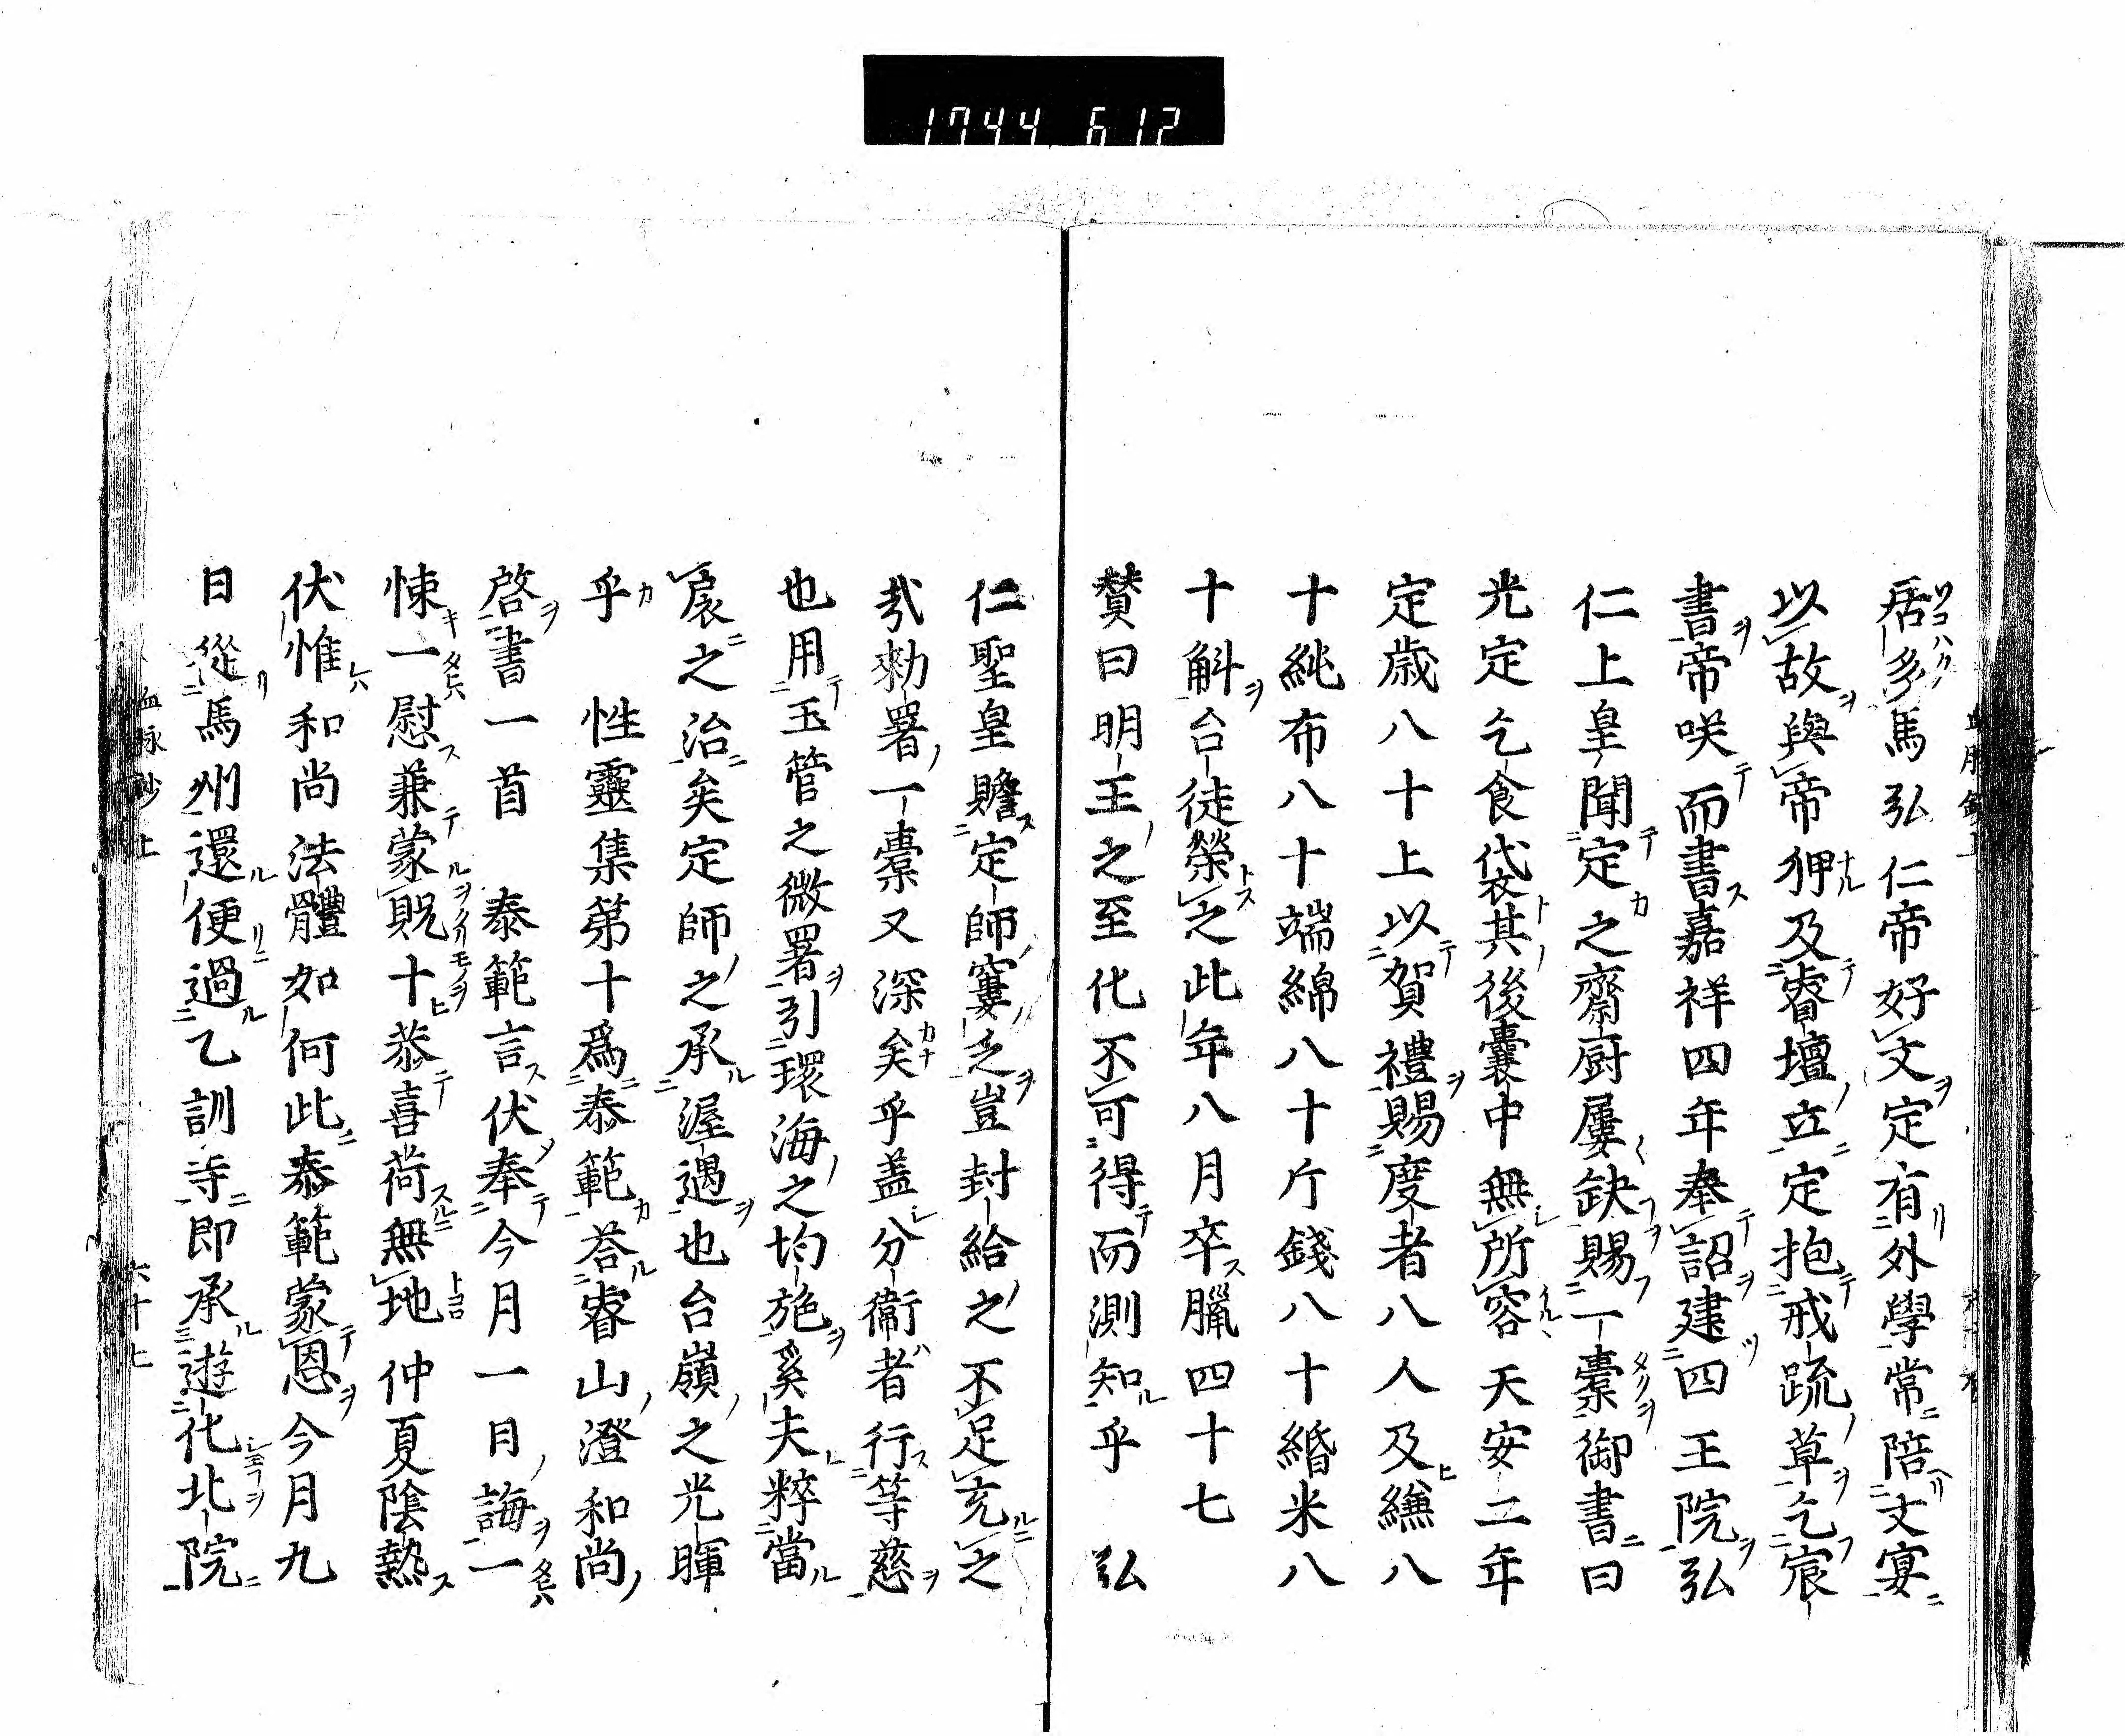 1744 612
居多馬弘仁帝好文定有外學常陪文宴
以故與帝狎及睿壇立定抱戒疏草乞宸
書帝咲而書嘉祥四年奉詔建四王院弘
仁上皇聞定之齋厨屢缺賜一橐御書曰
光定乞食袋其後囊中無所容天安二年
定歳八十上以賀禮賜度者八人及縑八
十純布八十端綿八十斤錢八十緡米八
十斛台徒榮之此年八月卒臘四十七
賛曰明王之至化不可得而測知乎 弘
仁聖皇贍定師窶乏豈封給之不足充之
哉勅署一橐又深矣乎盖分衞者行等慈
也用玉管之微署引環海之均施奚夫粹當
扆之治矣定師之承渥遇也台嶺之光暉
乎 性靈集第十爲泰範荅睿山澄和尚
啓書一首 泰範言伏奉今月一日誨一
悚一慰兼蒙貺十恭喜荷無地仲夏陰熱
伏惟和尚法體如何此泰範蒙恩今月九
日從馬州還便過乙訓寺即承遊化北院
血脉鈔上 六十七